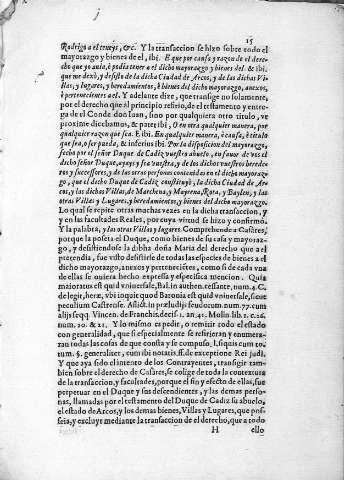 15
Rodrigo a el teneys, &c. Y la transaccion se hizo sobre todo el
mayorazgo y bienes de el, ibi. E que por causa y razon de el dere-
cho que yo auia, è podia tener a el dicho mayorazgo y bienes del & ibi.
que me dexò, y desisto de la dicha Ciudad de Arcos, y de las dichas Vi-
llas, y lugares, y heredamientos, è bienes del dicho mayorazgo, anexos,
è pertenecientes a el. Y adelante dize, que transige no solamente,
por el derecho que al principio refirio, de el testamento y entre-
ga de el Conde don Iuan, sino por qualquiera otro titulo, ve
proxime dicebamos, & patet ibi, O en otra qualquier manera, por
qualquier razon que sea. E ibi. En qualquier manera, è causa, è titulo
que sea, o ser pueda, & inferius ibi. Por la disposicion del mayorazgo,
fecha por el señor Duque de Cadiz vuestro abuelo, en fauor de vos el
dicho señor Duque, y para que sea vuestra, y de los dichos vuestros herede-
ros y successores, y de las otras personas contenidas en el dicho mayoraz-
go, que el dicho Duque de Cadiz constituyò, la dicha Ciudad de Ar-
cos, y las dichas Villas, de Marchena, y Mayrena, Rota, y Baylen, y las
otras Villas y Lugares, y heredamientos, y bienes del dicho mayorazgo.
Lo qual se repite otras muchas vezes en la dicha transaccion, y
y en las facultades Reales, por cuya virtud se hizo y confirmo.
Y la palabra, y las otras Villas y lugares. Comprehende a Casares,
porque la poseîa el Duque, como bienes de su casa y mayoraz-
go, y desistiendose la dicha doña Maria del derecho que a el
pretendia, fue visto desistirse de todas las especies de bienes a el
dicho mayorazgo, anexos y pertenecientes, como si de cada vna
de ellas se ouiera hecho expressa y especifica mention. Quia
maioratus est quid vniuersale, Bal. in authen. cessante, num. 4. C.
de legit, hered. vbi inquit quod Baronia est quid vniuersale, sicut
peculium Castrense. Aflict. in præludijs feudorum. num. 77. cum
alijs seqq. Vincen. de Franchis. decis. 1. an. 41. Molin. lib. 1. c. 16.
num. 20. & 21. Y lo mismo es pedir, o remitir todo el estado
con generalidad, que si especialmente se refirieran y enumera-
ran todas las cosas de que consta y se compuso, l. si quis cum to-
tum. §. generaliter, cum ibi notatis. ff. de exceptione Rei judi.
Y que aya sido el intento de los Contrayentes, transigir tam
bien sobre el derecho de Casares, se colige de toda la contextura
de la transaccion, y facultades, porque el fin y efecto de ellas, fue
perpetuar en el Duque y sus descendientes, y las demas perso-
nas, llamadas por el testamento del Duque de Cadiz su abuelo,
el estado de Arcos, y los demas bienes, Villas y Lugares, que pos-
seia, y excluye mediante la transaccion de el derecho, que a todo
H ello